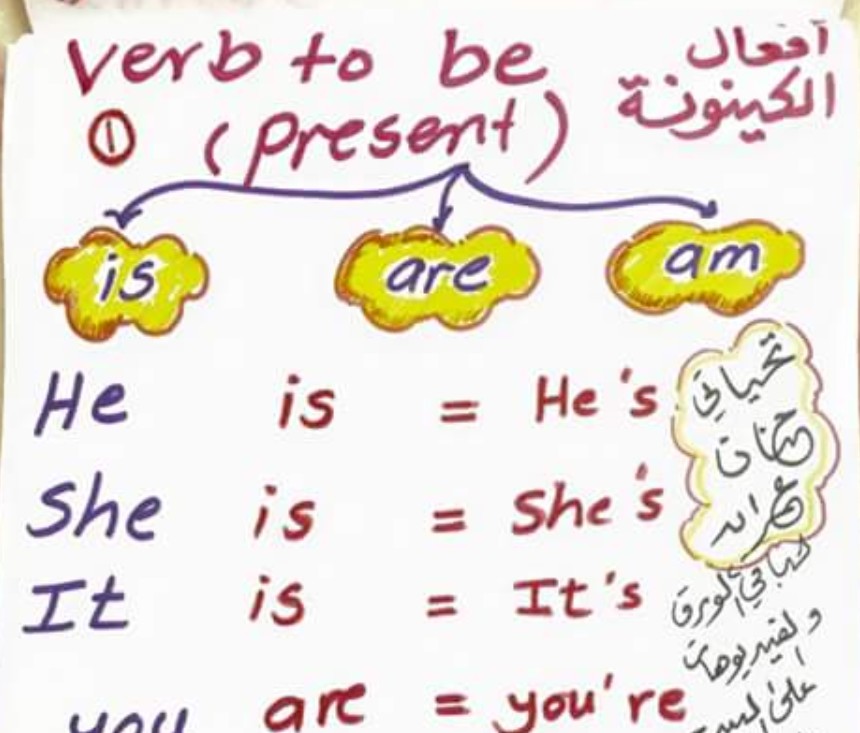 verb to be
أفعال
الكينونة
① (present)
is are am
He is = He's
She is = She's
It is = It's
you are = you're
تحياتي
باقي الورق
على